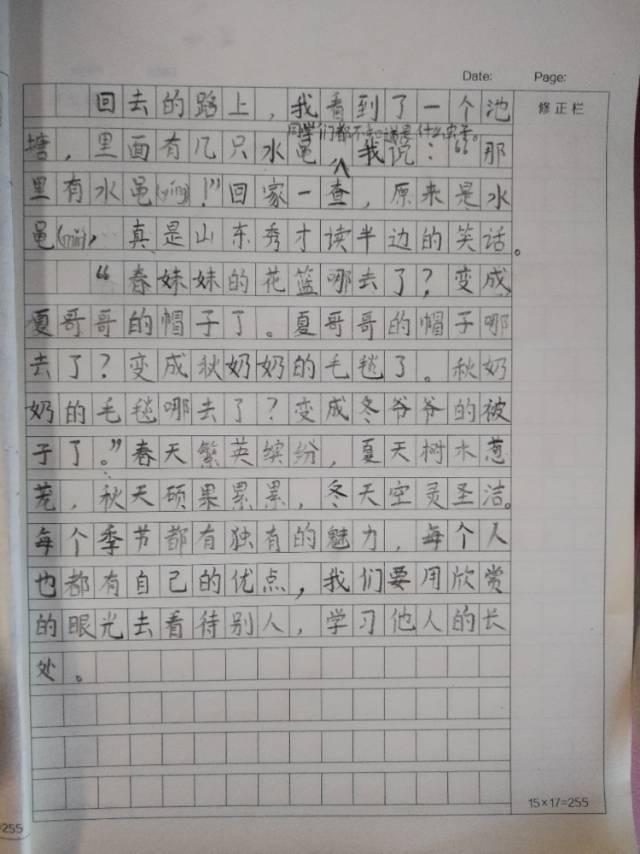 Date: Page:
修正栏
回去的路上，我看到了一个池
同学们都不知道是什么字。
塘，里面有几只水黾，我说：“那
里有水黾(yíng)！”回家一查，原来是水
黾(mǐn)，真是山东秀才读半边的笑话。
“春妹妹的花篮哪去了？变成
夏哥哥的帽子了。夏哥哥的帽子哪
去了？变成秋奶奶的毛毯了。秋奶
奶的毛毯哪去了？变成冬爷爷的被
子了。”春天繁英缤纷，夏天树木葱
茏，秋天硕果累累，冬天空灵圣洁。
每个季节都有独有的魅力，每个人
也都有自己的优点，我们要用欣赏
的眼光去看待别人，学习他人的长
处。
15×17=255
=255